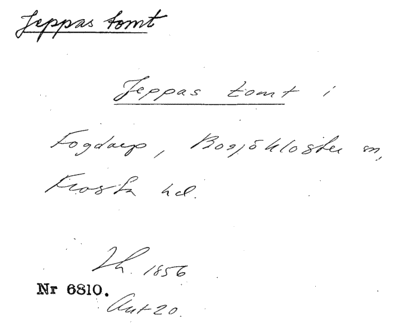 Jeppas tomt
Jeppas tomt i
Fogdarp, Bosjökloster sn,
Frosta hd.
Lh. 1856
Nr 6810.
Ant 20.